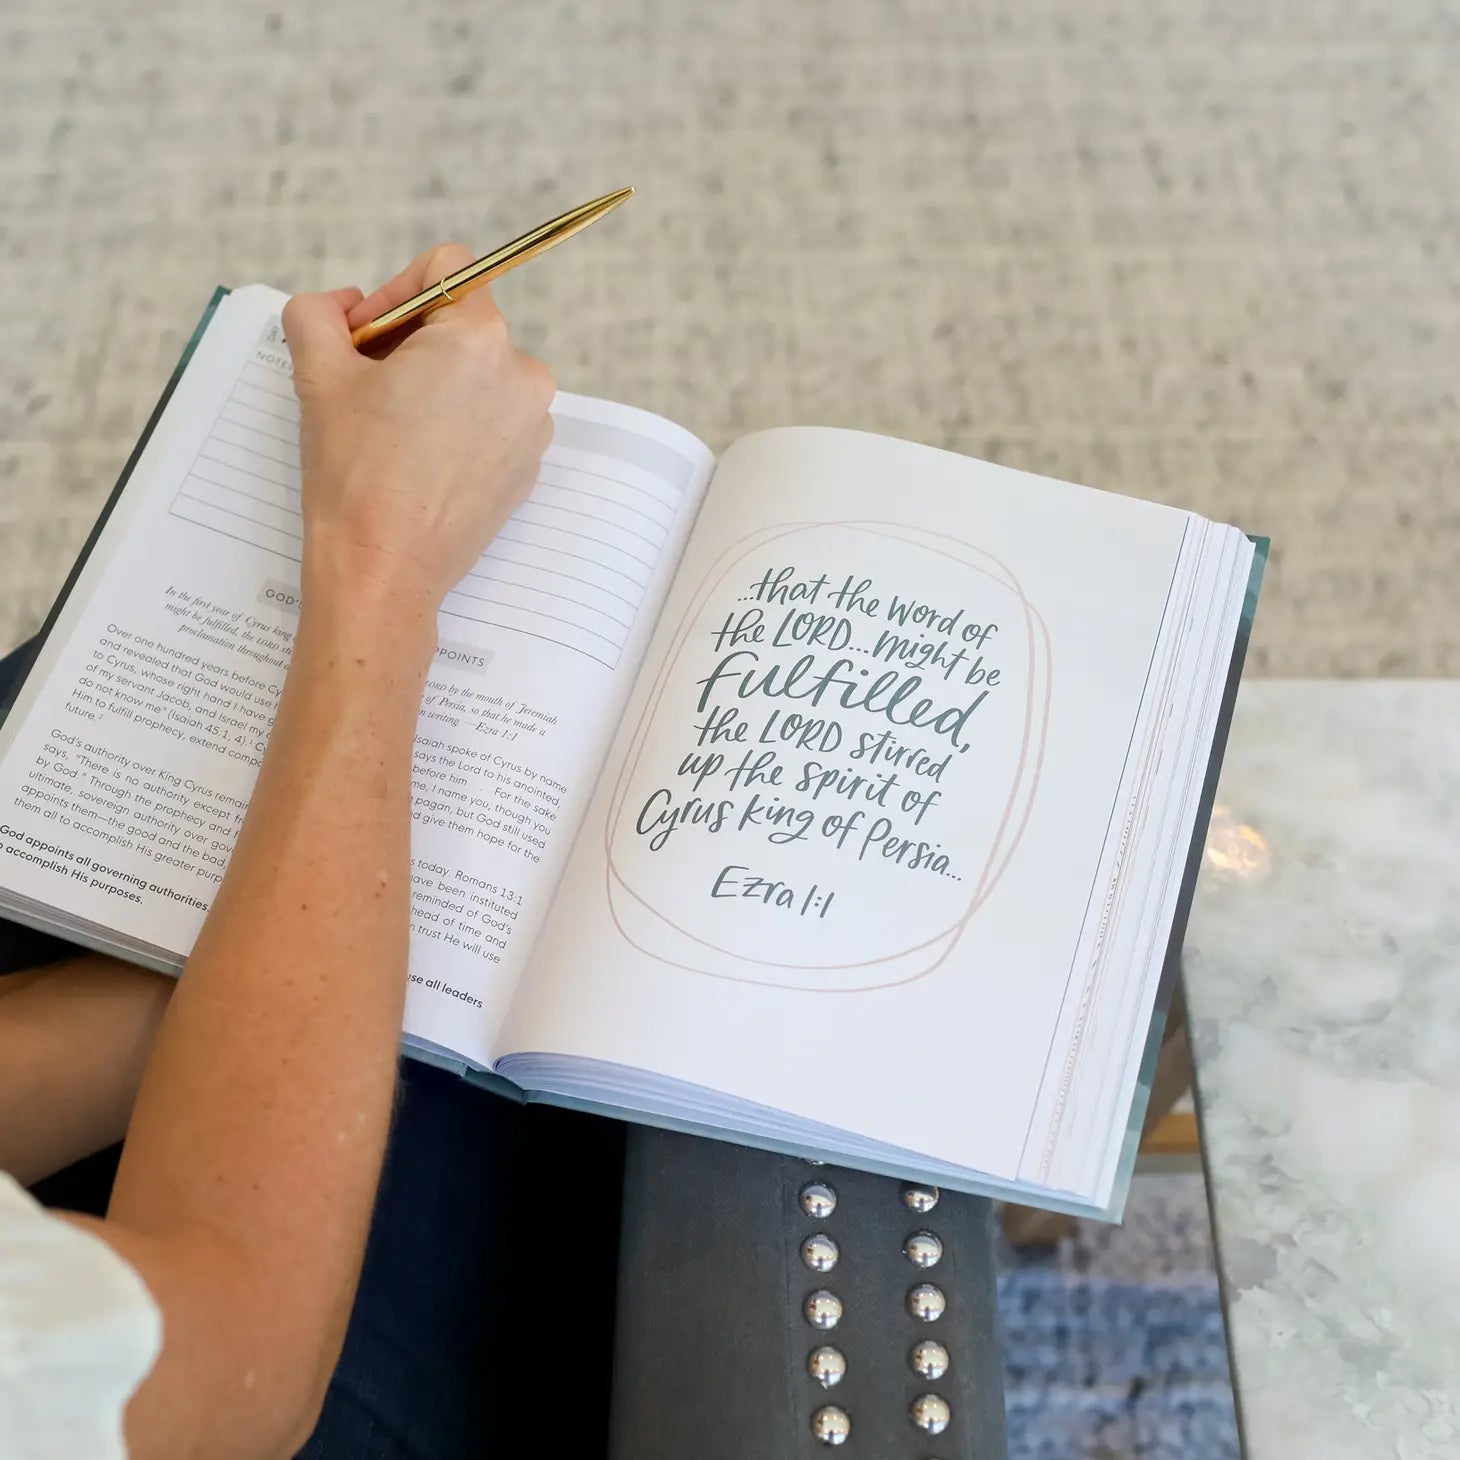 DAY
NOTES
GOD'S
PPOINTS
In the first year of Cyrus king
LORD by the mouth of Jeremiah
might be fulfilled, the LORD
of Persia, so that he made a
proclamation throughout
writing. —Ezra 1:1
Over one hundred years before
Isaiah spoke of Cyrus by name
and revealed that God would use
says the Lord to his anointed,
to Cyrus, whose right hand I have
before him . . . For the sake
of my servant Jacob, and Israel my
me, I name you, though you
do not know me" (Isaiah 45:1, 4).¹
pagan, but God still used
Him to fulfill prophecy, extend
give them hope for the
future.²
God's authority over King Cyrus
today. Romans 13:1
says, "There is no authority except
have been instituted
by God." Through the prophecy and
reminded of God's
ultimate, sovereign authority over
head of time and
appoints them—the good and the bad,
trust He will use
them all to accomplish His greater
God appoints all governing authorities.
use all leaders
accomplish His purposes.
...that the word of
the LORD...might be
fulfilled,
the LORD stirred
up the spirit of
Cyrus king of Persia...
Ezra 1:1